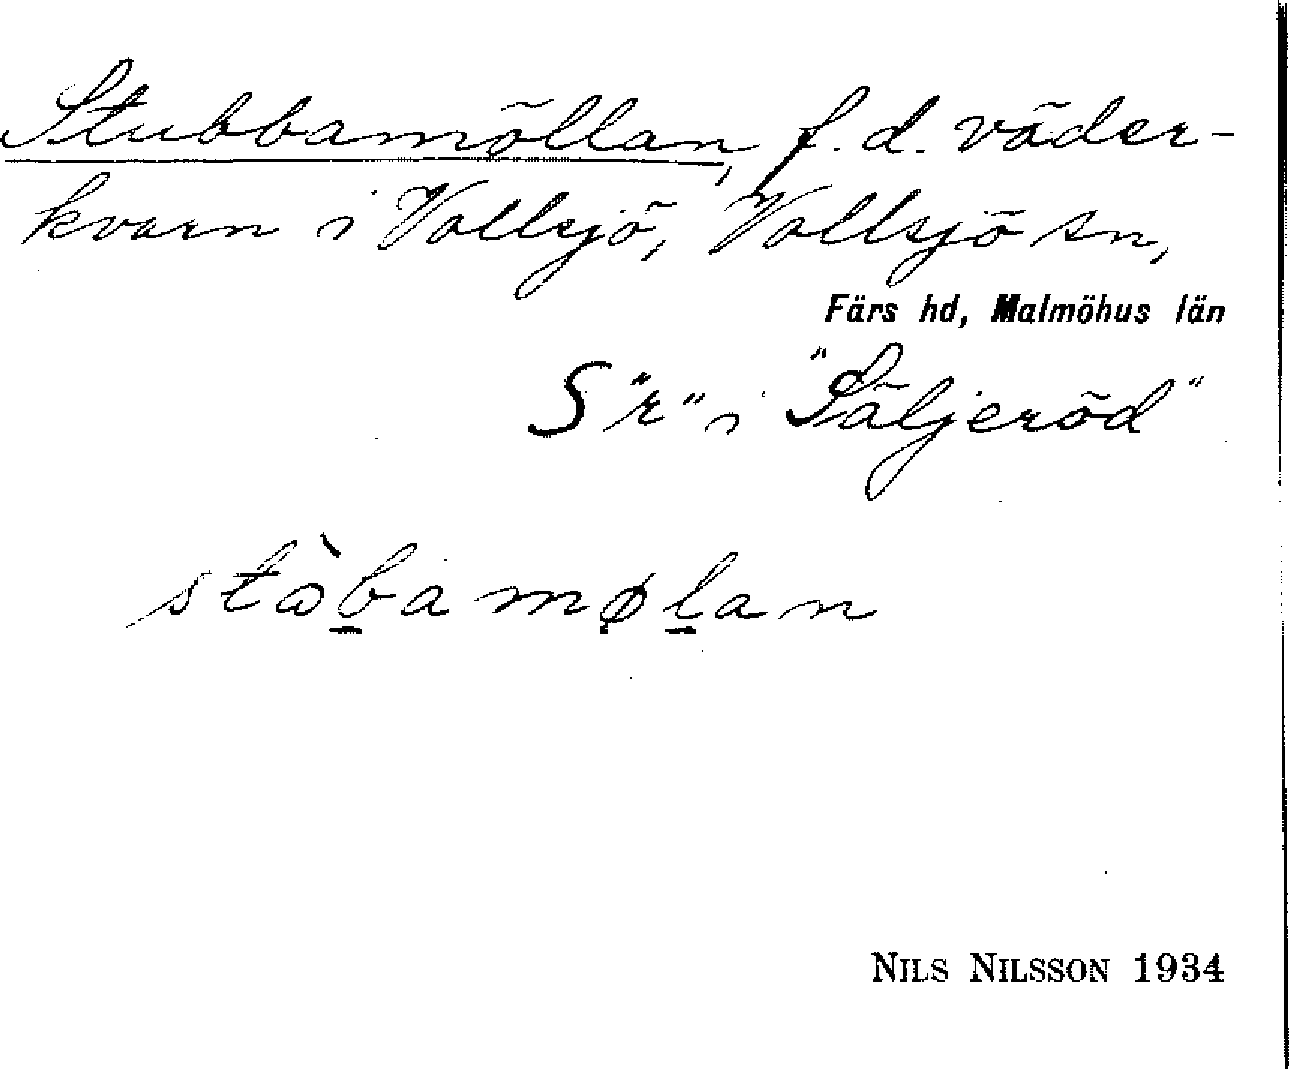 Stubbamöllan, f.d. väder-
kvarn i Vollsjö, Vollsjö sn,
Färs hd, Malmöhus län
S "r" i "Säljeröd"
stɷ̀b̲amø̣l̲an
NILS NILSSON 1934